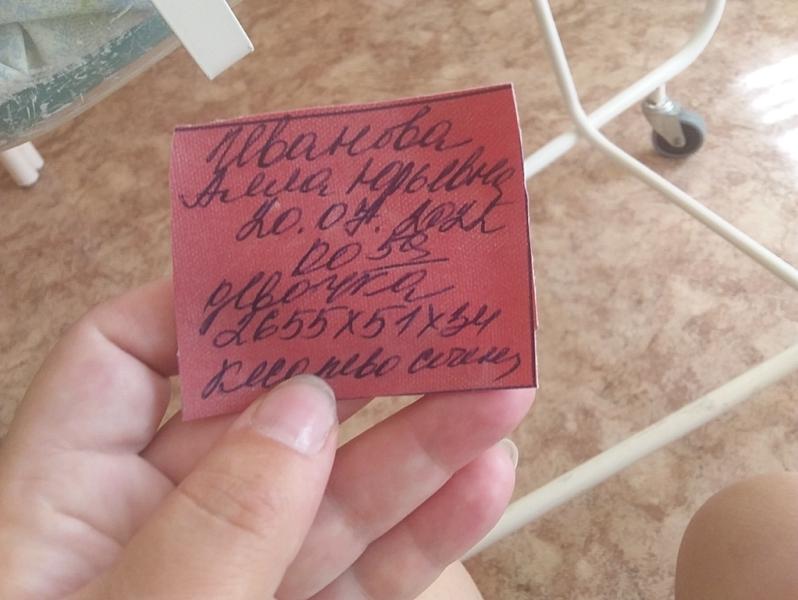 Иванова
Алла Юрьевна
20.07.2022
00 53
девочка
2655х51х34
кесарево сечение